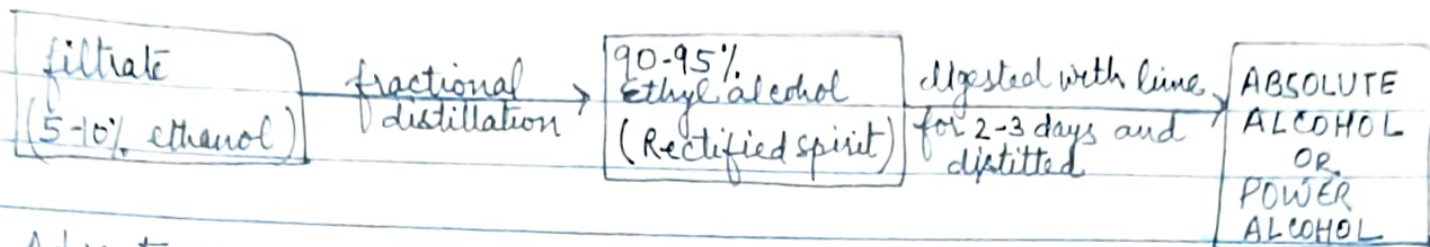 filtrate
(5-10% ethanol)
fractional
distillation
90-95%
Ethyl alcohol
(Rectified spirit)
digested with lime
for 2-3 days and
distitted
ABSOLUTE
ALCOHOL
OR
POWER
ALCOHOL